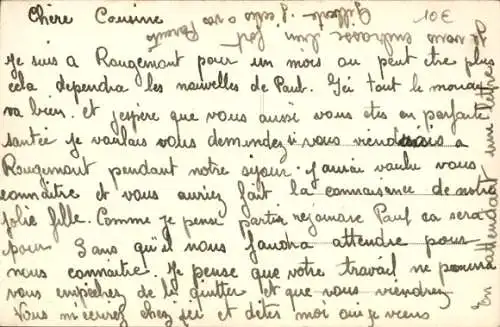 Chère Cousine
je suis a Rougemont pour un mois ou peut etre plus
cela dependra les nouvelles de Paul. Ici tout le monde
va bien. et j'espère que vous aussi vous etes en parfaite
santée je voulais vous demender si vous viendrais a
Rougemont pendant notre sejour. j'aurai voulu vous
connaitre et vous auriez fait la connaisance de notre
jolie fille. Comme je pense partir rejoindre Paul ca sera
pour 3 ans qu'il nous faudra attendre pour
nous connaitre. Je pense que votre travail ne pourra
vous empêchez de le quitter et que vous viendrez
Vous m'ecrirez chez fei et dites moi que je viens
En attendant une lettre
je vous embrasse bien fort
Gilberte
10€